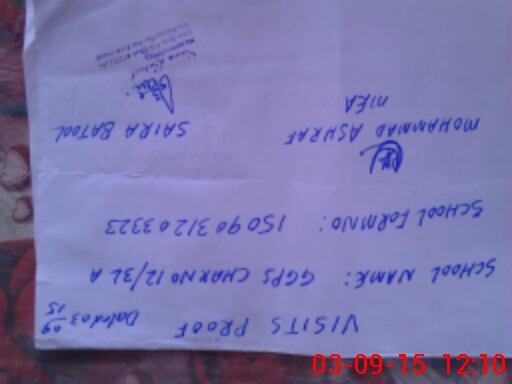 VISITS PROOF Dated 03 09/15
SCHOOL NAME: GGPS CHAK NO 12/3L A
SCHOOL FORM NO: 1509031203323
MOHAMMAD ASHRAF SAIRA BATOOL
MEA
03-09-15 12:10